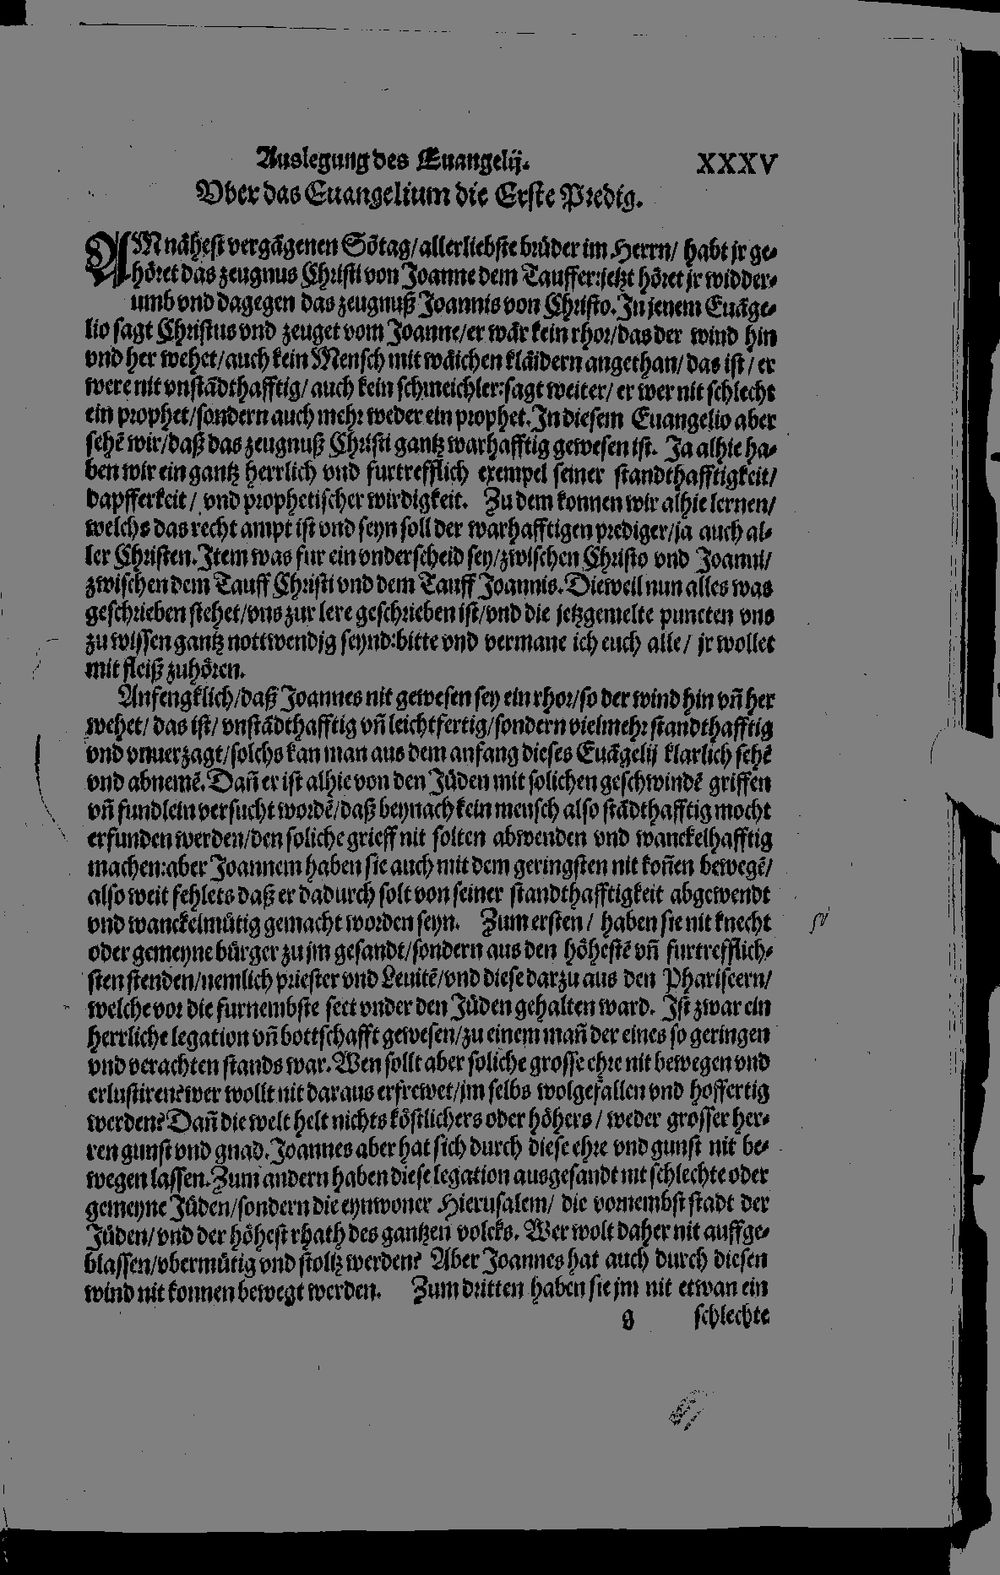 Auslegung des Euangelij. XXXV
Vber das Euangelium die Erste Predig.
AM nähest vergāgenen Sōtag/ allerliebste brüder im Herrn/ habt jr ge-
höret das zeugnus Christi von Joanne dem Tauffer: jetzt höret jr widder-
umb vnd dagegen das zeugnuß Joannis von Christo. In jenem Euāge-
lio sagt Christus vnd zeuget vom Joanne/ er wär kein rhor/ das der wind hin
vnd her wehet/ auch kein Mensch mit wäichen kläidern angethan/ das ist/ er
were nit vnstādthafftig/ auch kein schmeichler: sagt weiter/ er wer nit schlecht
ein prophet/ sondern auch mehr weder ein prophet. In diesem Euangelio aber
sehē wir/ daß das zeugnuß Christi gantz warhafftig gewesen ist. Ja alhie ha-
ben wir ein gantz herrlich vnd furtrefflich exempel seiner standthafftigkeit/
dapfferkeit/ vnd prophetischer wirdigkeit. Zu dem konnen wir alhie lernen/
welchs das recht ampt ist vnd seyn soll der warhafftigen prediger/ ja auch al-
ler Christen. Item was fur ein vnderscheid sey/ zwischen Christo vnd Joanni/
zwischen dem Tauff Christi vnd dem Tauff Joannis. Dieweil nun alles was
geschrieben stehet/ vns zur lere geschrieben ist/ vnd die jetzgemelte puncten vns
zu wissen gantz nottwendig seynd: bitte vnd vermane ich euch alle/ jr wollet
mit fleiß zuhören.
Anfengklich/ daß Joannes nit gewesen sey ein rhor/ so der wind hin vñ her
wehet/ das ist/ vnstādthafftig vñ leichtfertig/ sondern vielmehr standthafftig
vnd vnuerzagt/ solchs kan man aus dem anfang dieses Euāgelij klarlich sehē
vnd abnemē. Dañ er ist alhie von den Jüden mit solichen geschwindē griffen
vñ fundlein versucht wordē/ daß beynach kein mensch also stādthafftig mocht
erfunden werden/ den soliche grieff nit solten abwenden vnd wanckelhafftig
machen: aber Joannem haben sie auch mit dem geringsten nit koñen bewegē/
also weit fehlets daß er dadurch solt von seiner standthafftigkeit abgewendt
vnd wanckelmütig gemacht worden seyn. Zum ersten/ haben sie nit knecht
oder gemeyne bürger zu jm gesandt/ sondern aus den höhestē vñ furtrefflich-
sten stenden/ nemlich priester vnd Leuitē/ vnd diese darzu aus den Phariseern/
welche vor die furnembste sect vnder den Jüden gehalten ward. Ist zwar ein
herrliche legation vñ bottschafft gewesen/ zu einem mañ der eines so geringen
vnd verachten stands war. Wen sollt aber soliche grosse ehre nit bewegen vnd
erlustiren? wer wollt nit daraus erfrewet/ jm selbs wolgefallen vnd hoffertig
werden? Dañ die welt helt nichts köstlichers oder höhers/ weder grosser her-
ren gunst vnd gnad. Joannes aber hat sich durch diese ehre vnd gunst nit be-
wegen lassen. Zum andern haben diese legation ausgesandt nit schlechte oder
gemeyne Jüden/ sondern die eynwoner Hierusalem/ die vornembst stadt der
Jüden/ vnd der höhest rhath des gantzen volcks. Wer wolt daher nit auffge-
blassen/ vbermütig vnd stoltz werden? Aber Joannes hat auch durch diesen
wind nit konnen bewegt werden. Zum dritten haben sie jm nit etwan ein
g schlechte